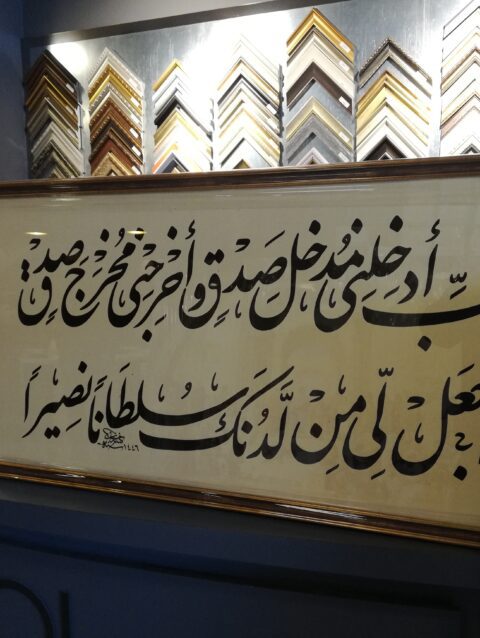 ـبِّ أدخِلنِي مُدخَل صَدقٍ وأخرِجنِي مُخرَجَ صِدقٍ
ـجعَل لِّي مِن لَّدُنكَ سُلطَانًا نَصِيرًا
١٤٤٦